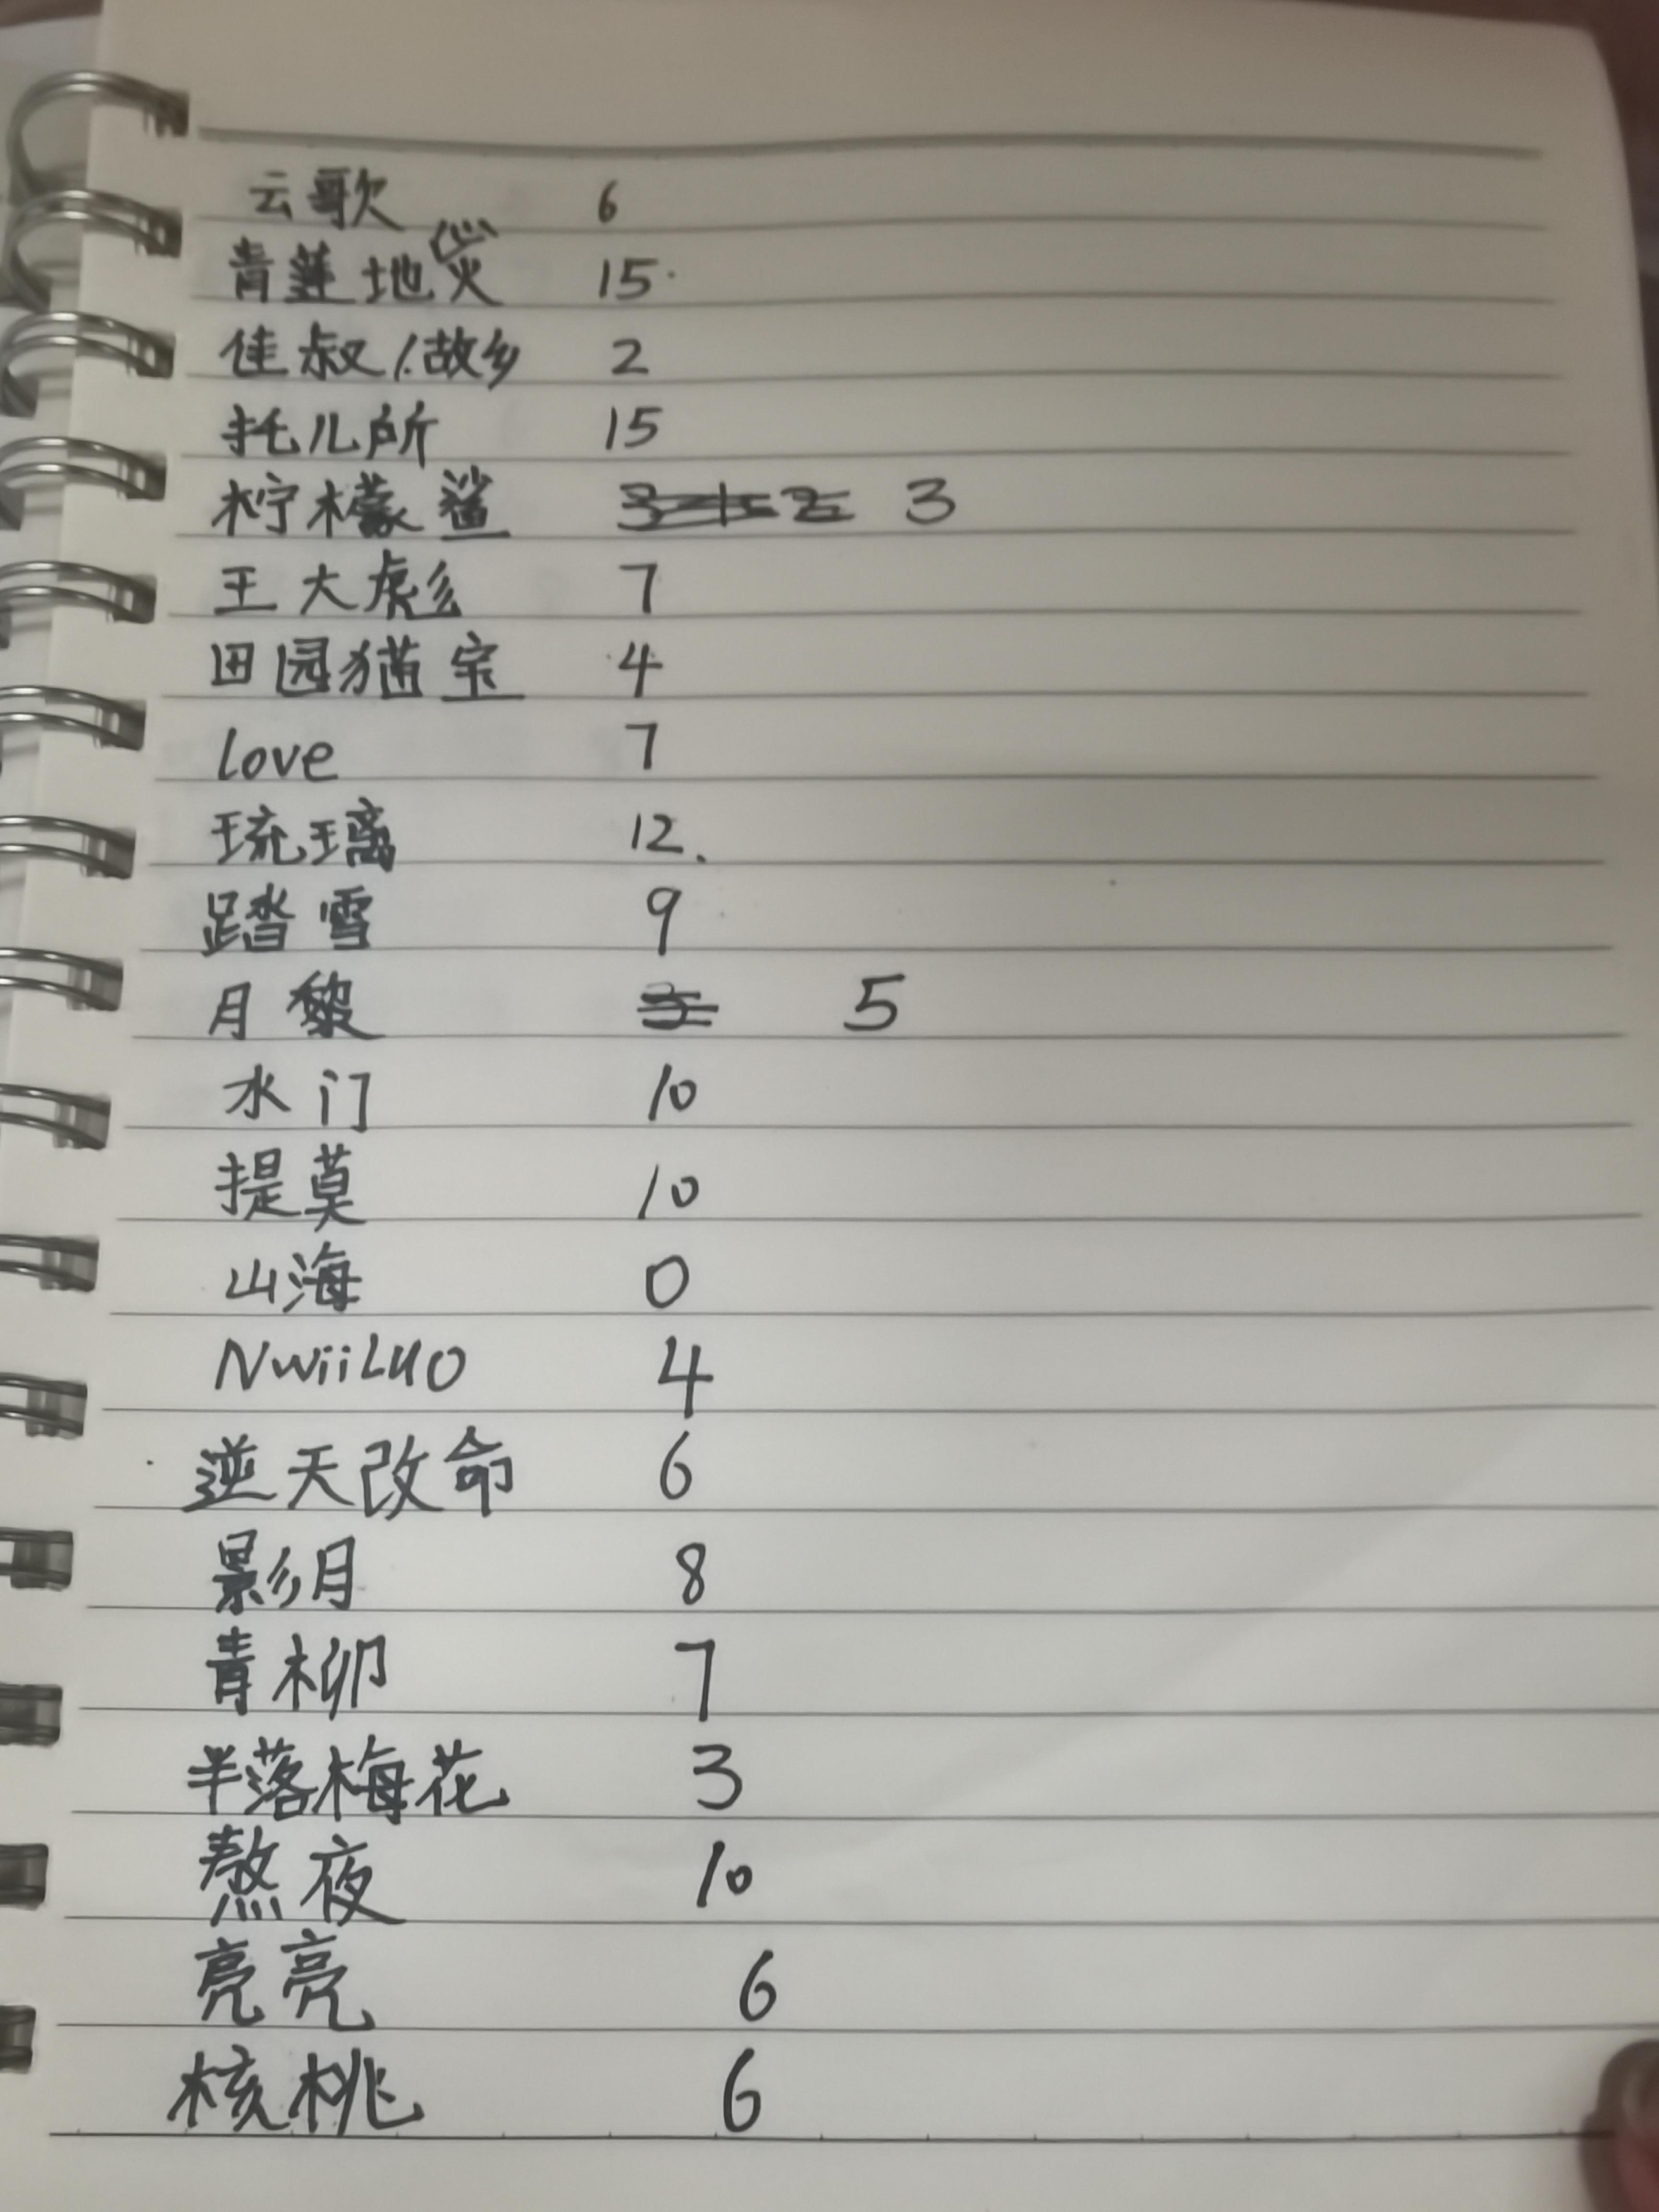 云歌 6
青莲地心火 15
佳叔/.故乡 2
托儿所 15
柠檬鲨 3
王大彪 7
田园猫宝 4
love 7
琉璃 12.
踏雪 9
月黎 5
水门 10
提莫 10
山海 0
NwiiLuo 4
逆天改命 6
影月 8
青柳 7
半落梅花 3
熬夜 10
亮亮 6
核桃 6